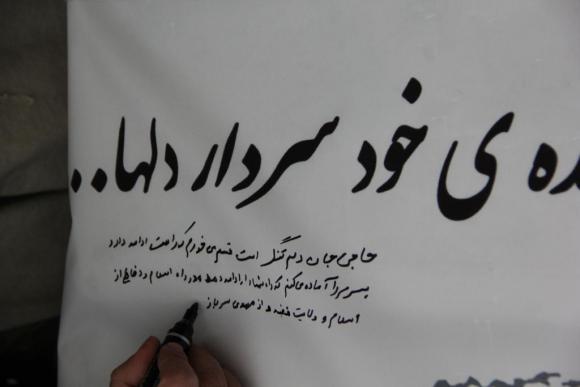 ده ی خود سردار دلها..
حاجی جان دلم تنگ است قسم می خورم که راهت ادامه دارد
پسرم را آماده می کنم که راه شما را ادامه دهد در راه اسلام و دفاع از
اسلام و ولایت فقیه و از مهدی سرباز